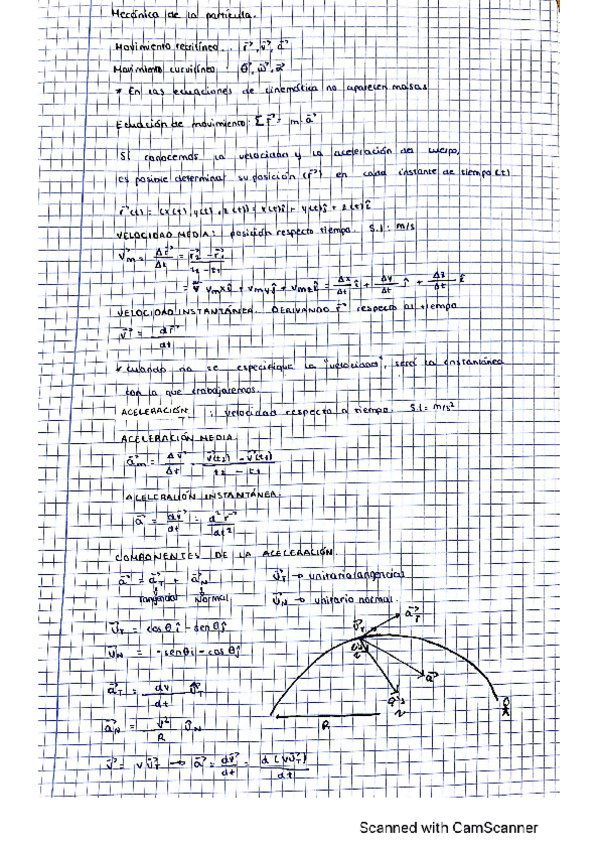 Mecánica de la partícula.
Movimiento rectilíneo : r⃗, v⃗, a⃗
Movimiento curvilíneo : θ⃗, ω⃗, α⃗
* En las ecuaciones de cinemática no aparecen masas
Ecuación de movimiento: Σ F⃗ = m·a⃗
Si conocemos la velocidad y la aceleración del cuerpo,
es posible determinar su posición (r⃗) en cada instante de tiempo (t)
r⃗(t) = (x(t), y(t), z(t)) = x(t)î + y(t)ĵ + z(t)k̂
VELOCIDAD MEDIA: posición respecto tiempo. S.I: m/s
v⃗m = Δr⃗/Δt = (r⃗2 - r⃗1)/(t2 - t1)
= vmxî + vmyĵ + vmzk̂ = Δx/Δt î + Δy/Δt ĵ + Δz/Δt k̂
VELOCIDAD INSTANTÁNEA. DERIVANDO r⃗ respecto al tiempo
v⃗ = dr⃗/dt
cuando no se especifique la "velocidad", será la instantánea
con la que trabajaremos.
ACELERACIÓN : velocidad respecto a tiempo. S.I: m/s²
ACELERACIÓN MEDIA.
a⃗m = Δv⃗/Δt = (v⃗(t2) - v⃗(t1))/(t2 - t1)
ACELERACIÓN INSTANTÁNEA.
a⃗ = dv⃗/dt = d²r⃗/dt²
COMPONENTES DE LA ACELERACIÓN.
a⃗ = a⃗T + a⃗N
Tangencial Normal
U⃗T → unitario tangencial
U⃗N → unitario normal.
U⃗T = cosθî - senθĵ
U⃗N = -senθî - cosθĵ
a⃗T = dv/dt U⃗T
a⃗N = v²/R U⃗N
v⃗ = vU⃗T → a⃗ = dv⃗/dt = d(vU⃗T)/dt
U⃗T
a⃗T
U⃗N
a⃗
a⃗N
R
Scanned with CamScanner